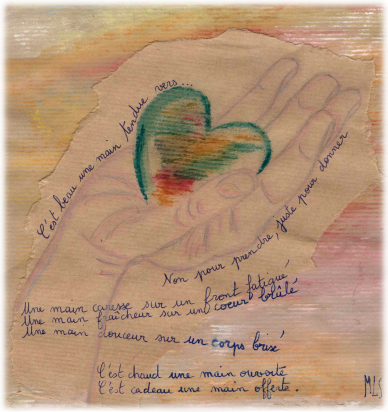 C'est beau une main tendue vers...
Non pour prendre, juste pour donner
Une main caresse sur un front fatigué
Une main fraîcheur sur un coeur brûlé
Une main douceur sur un corps brisé
C'est chaud une main ouverte
C'est cadeau une main offerte.
MLS